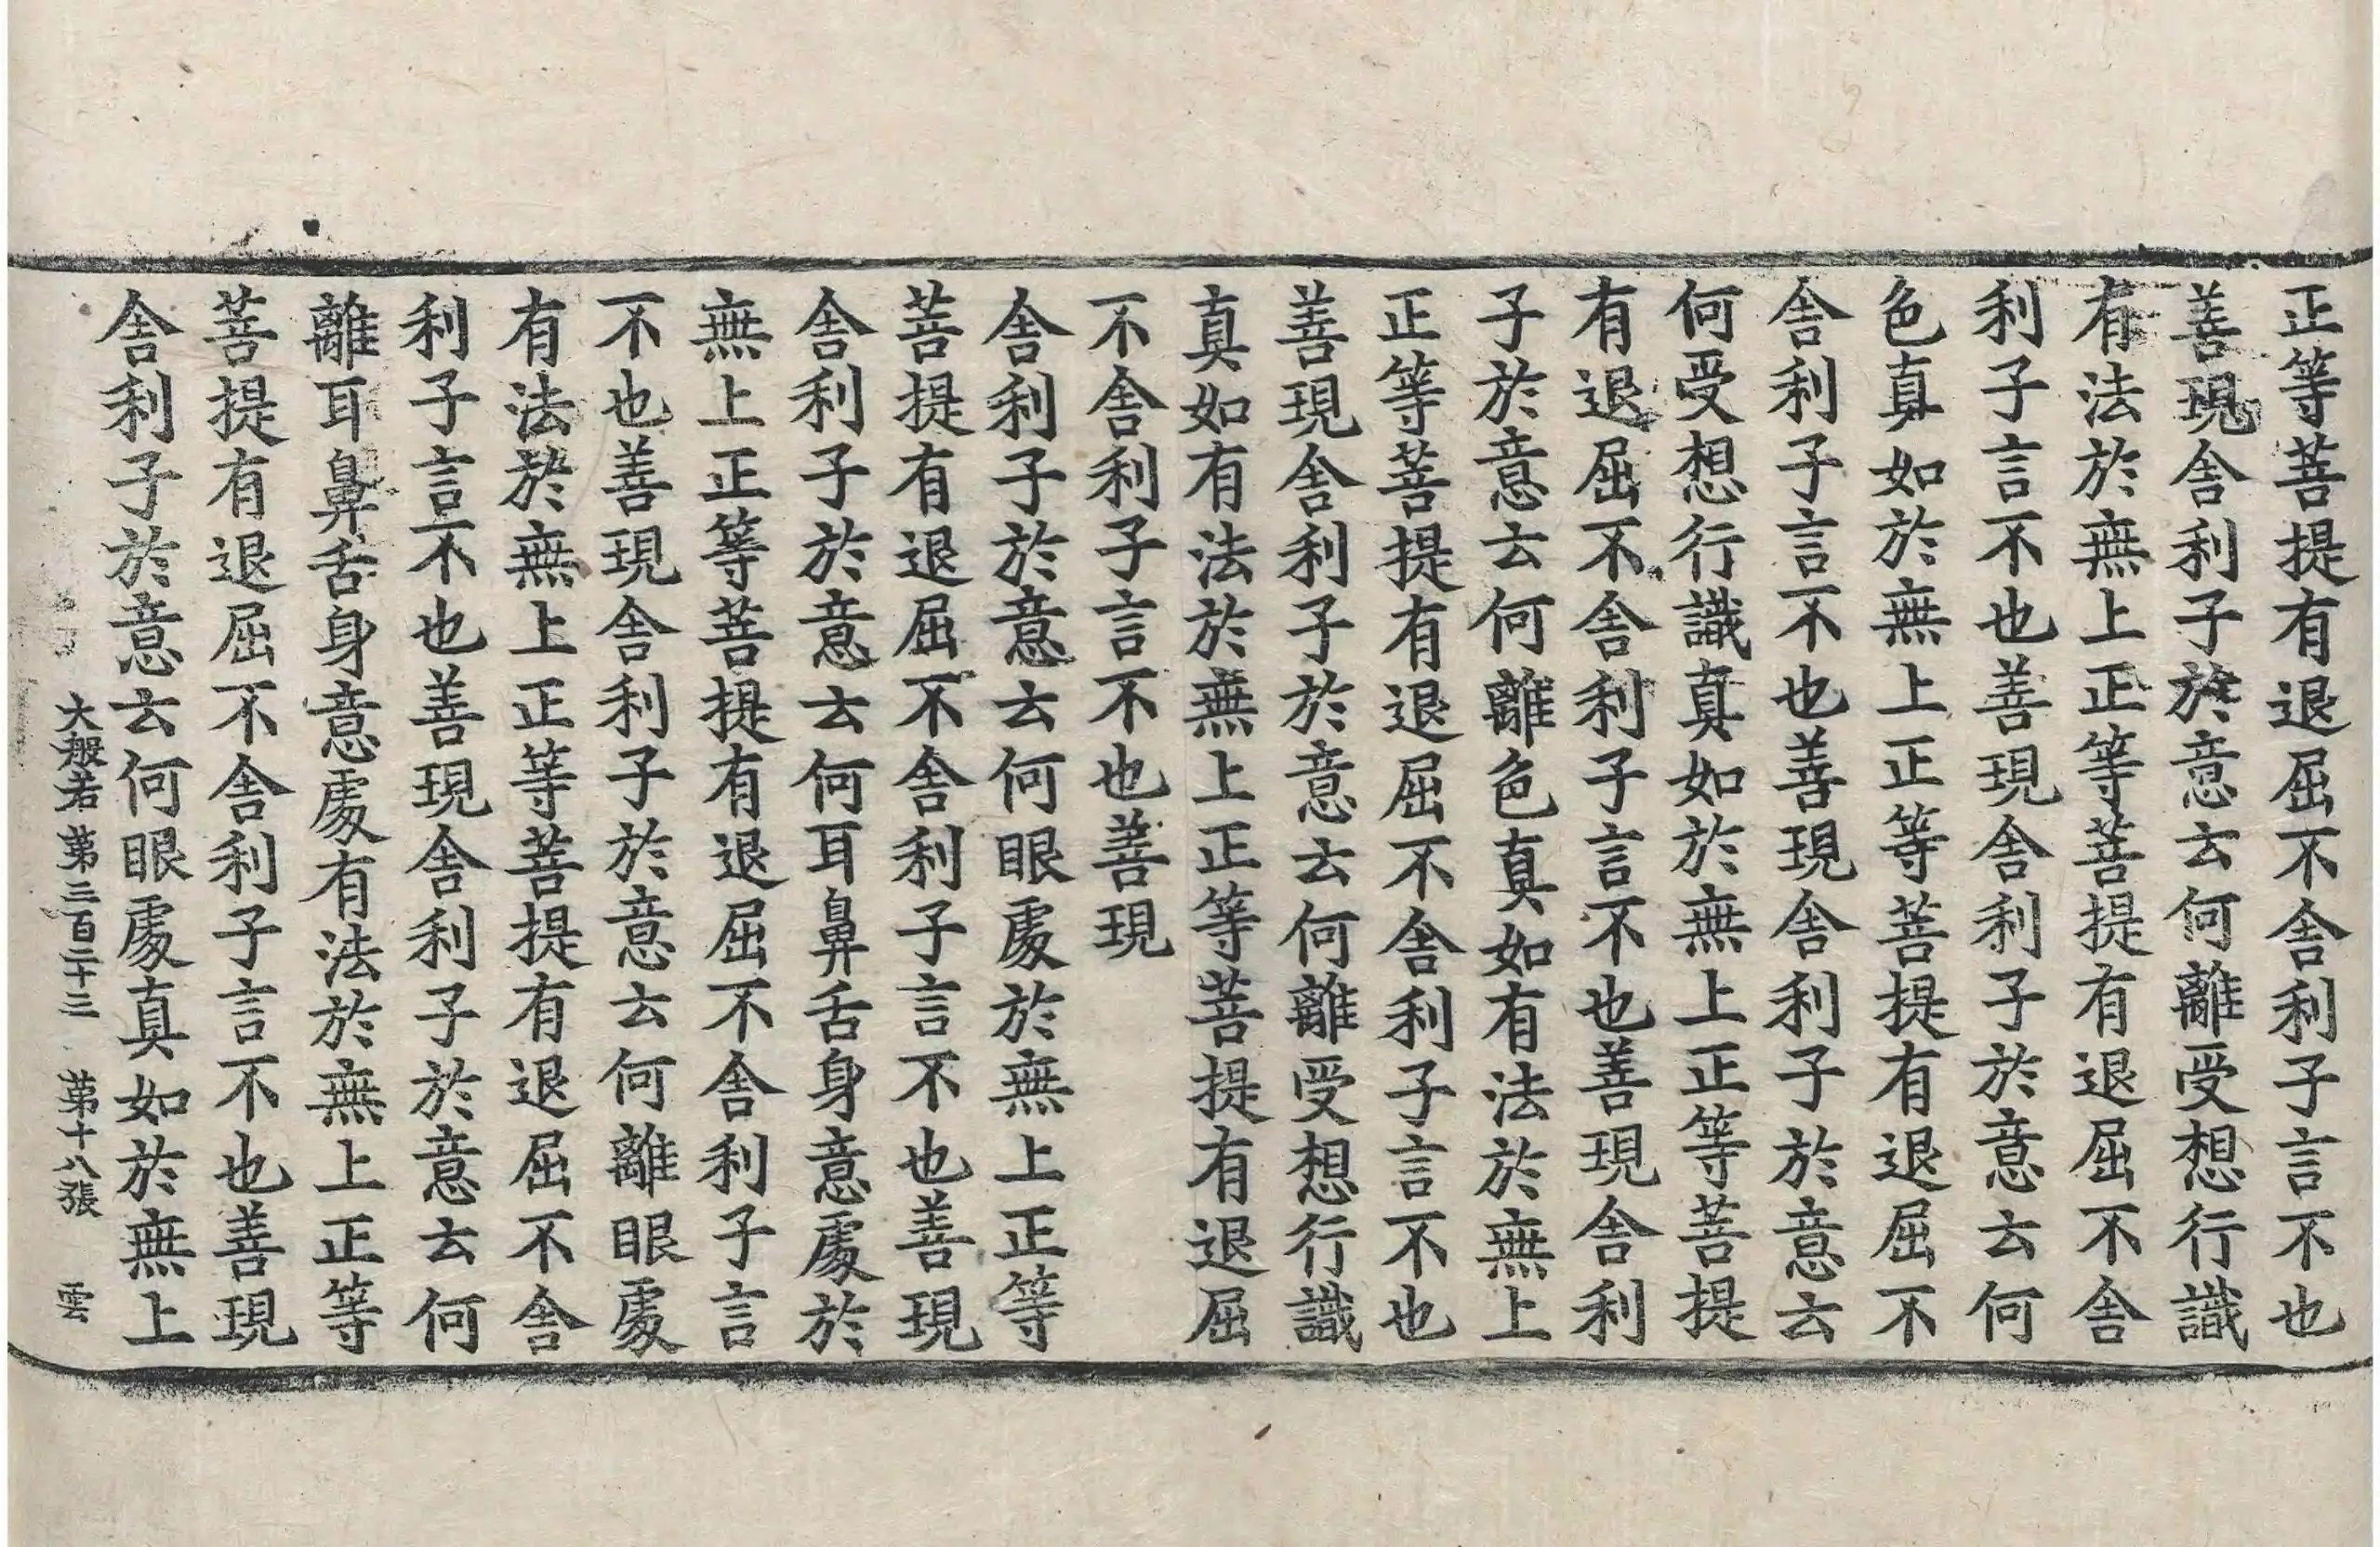 正等菩提有退屈不舍利子言不也
善現舍利子於意云何離受想行識
有法於無上正等菩提有退屈不舍
利子言不也善現舍利子於意云何
色真如於無上正等菩提有退屈不
舍利子言不也善現舍利子於意云
何受想行識真如於無上正等菩提
有退屈不舍利子言不也善現舍利
子於意云何離色真如有法於無上
正等菩提有退屈不舍利子言不也
善現舍利子於意云何離受想行識
真如有法於無上正等菩提有退屈
不舍利子言不也善現
舍利子於意云何眼處於無上正等
菩提有退屈不舍利子言不也善現
舍利子於意云何耳鼻舌身意處於
無上正等菩提有退屈不舍利子言
不也善現舍利子於意云何離眼處
有法於無上正等菩提有退屈不舍
利子言不也善現舍利子於意云何
離耳鼻舌身意處有法於無上正等
菩提有退屈不舍利子言不也善現
舍利子於意云何眼處真如於無上
大般若第三百二十三 第十八張 雲